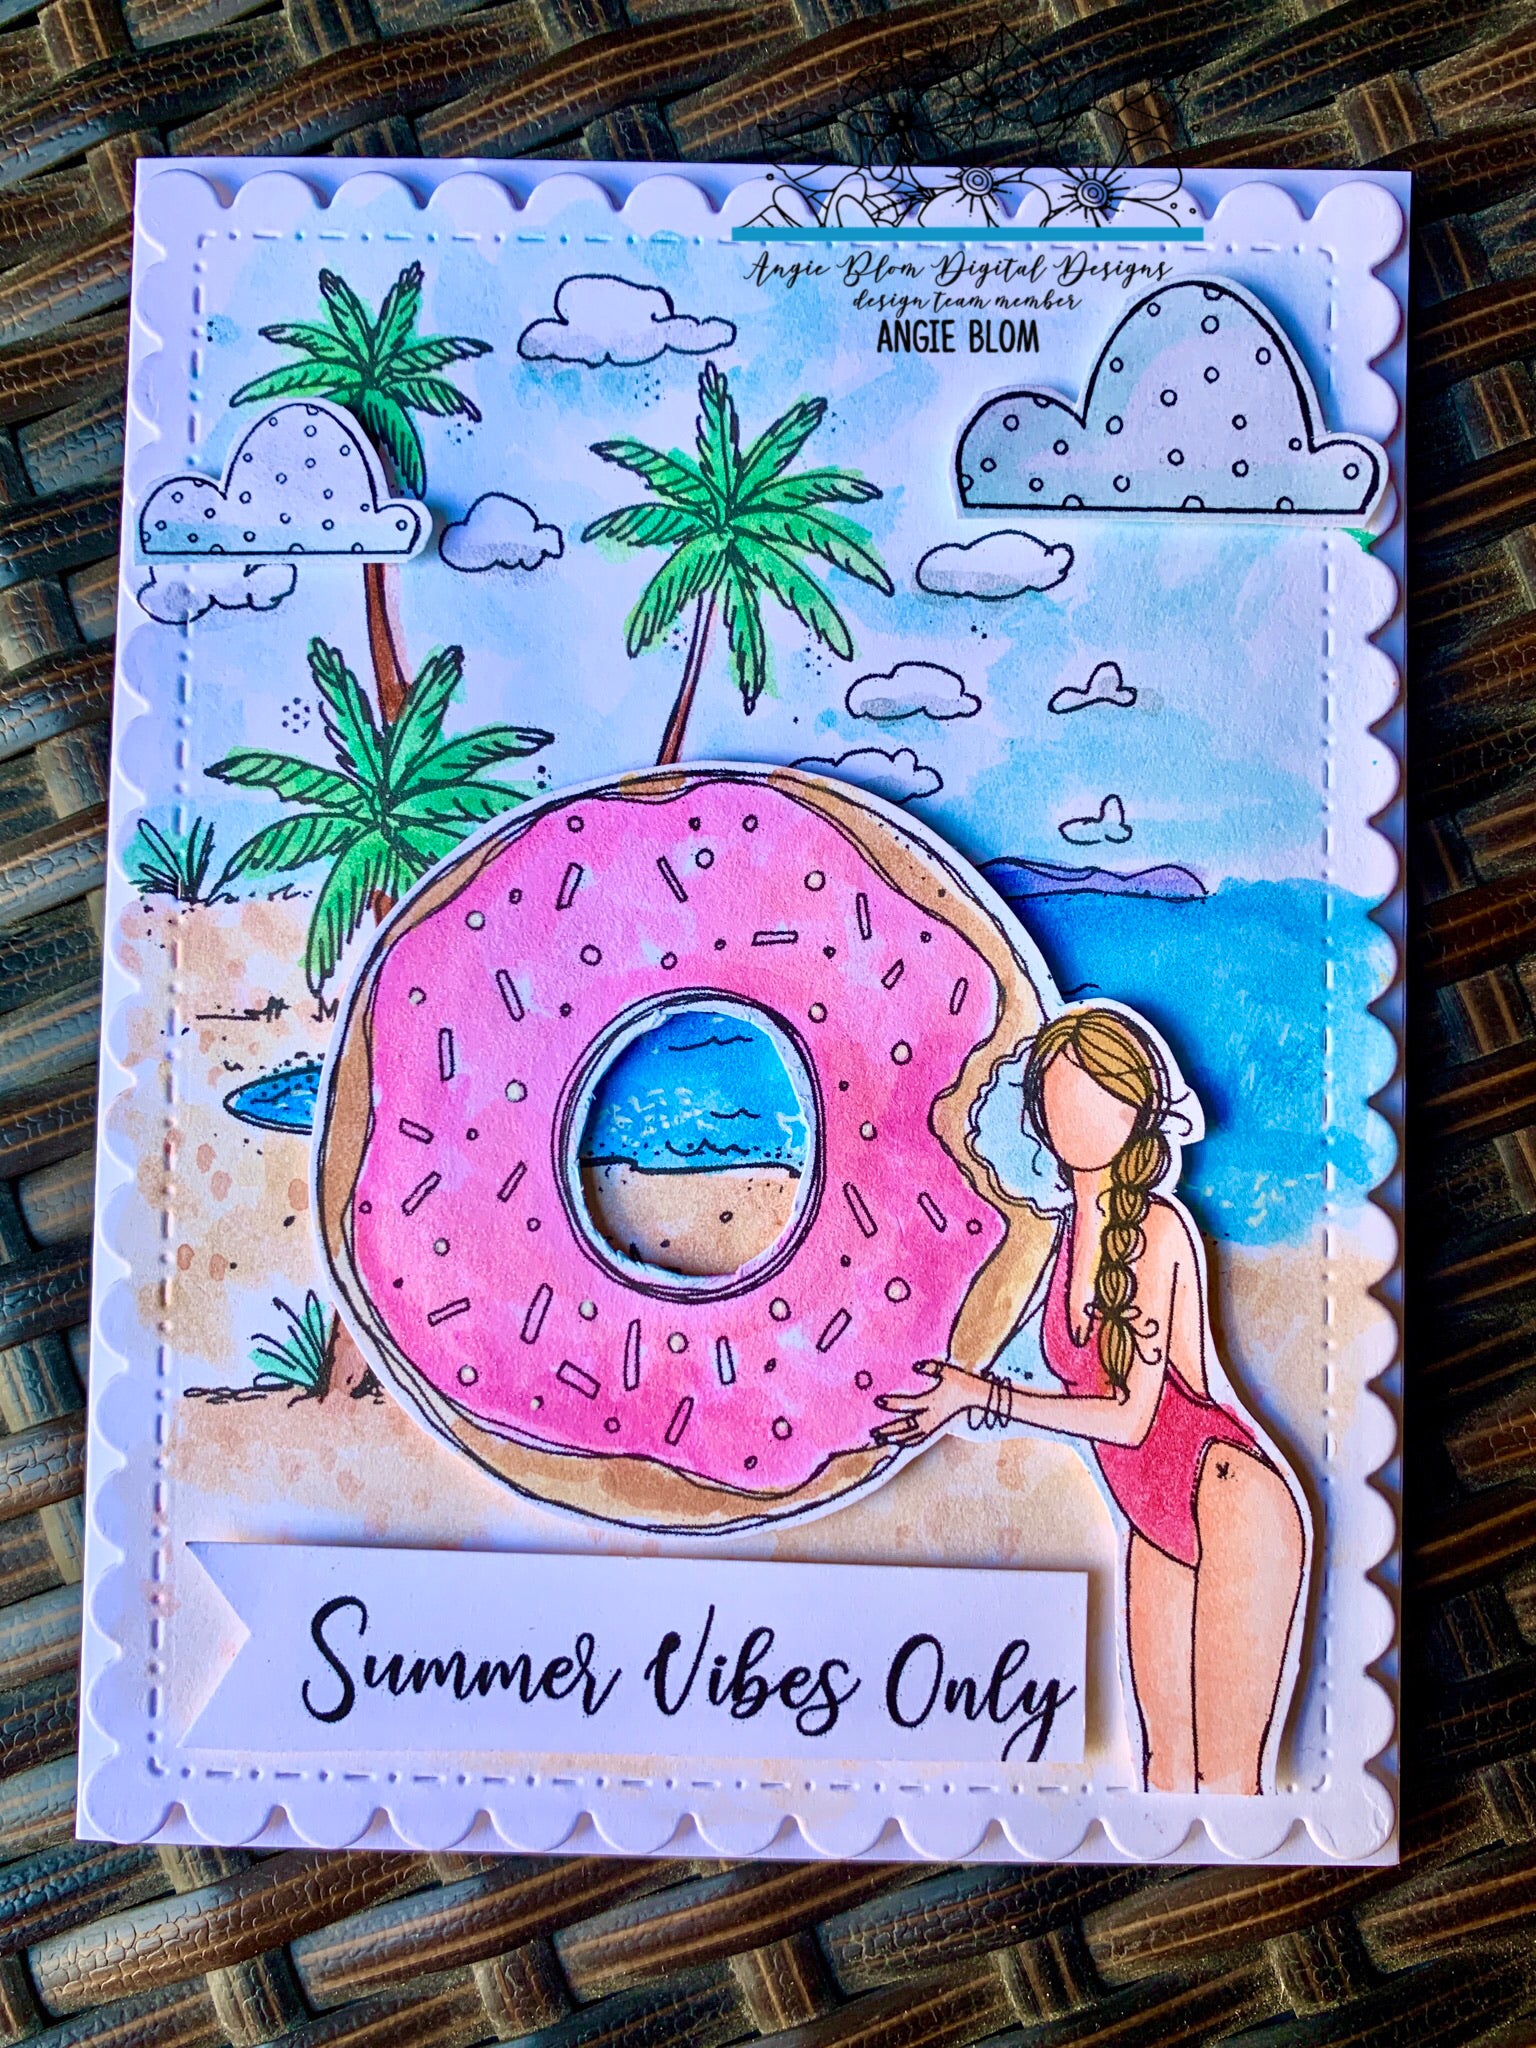 Angie Blom Digital Designs
design team member
ANGIE BLOM
Summer Vibes Only